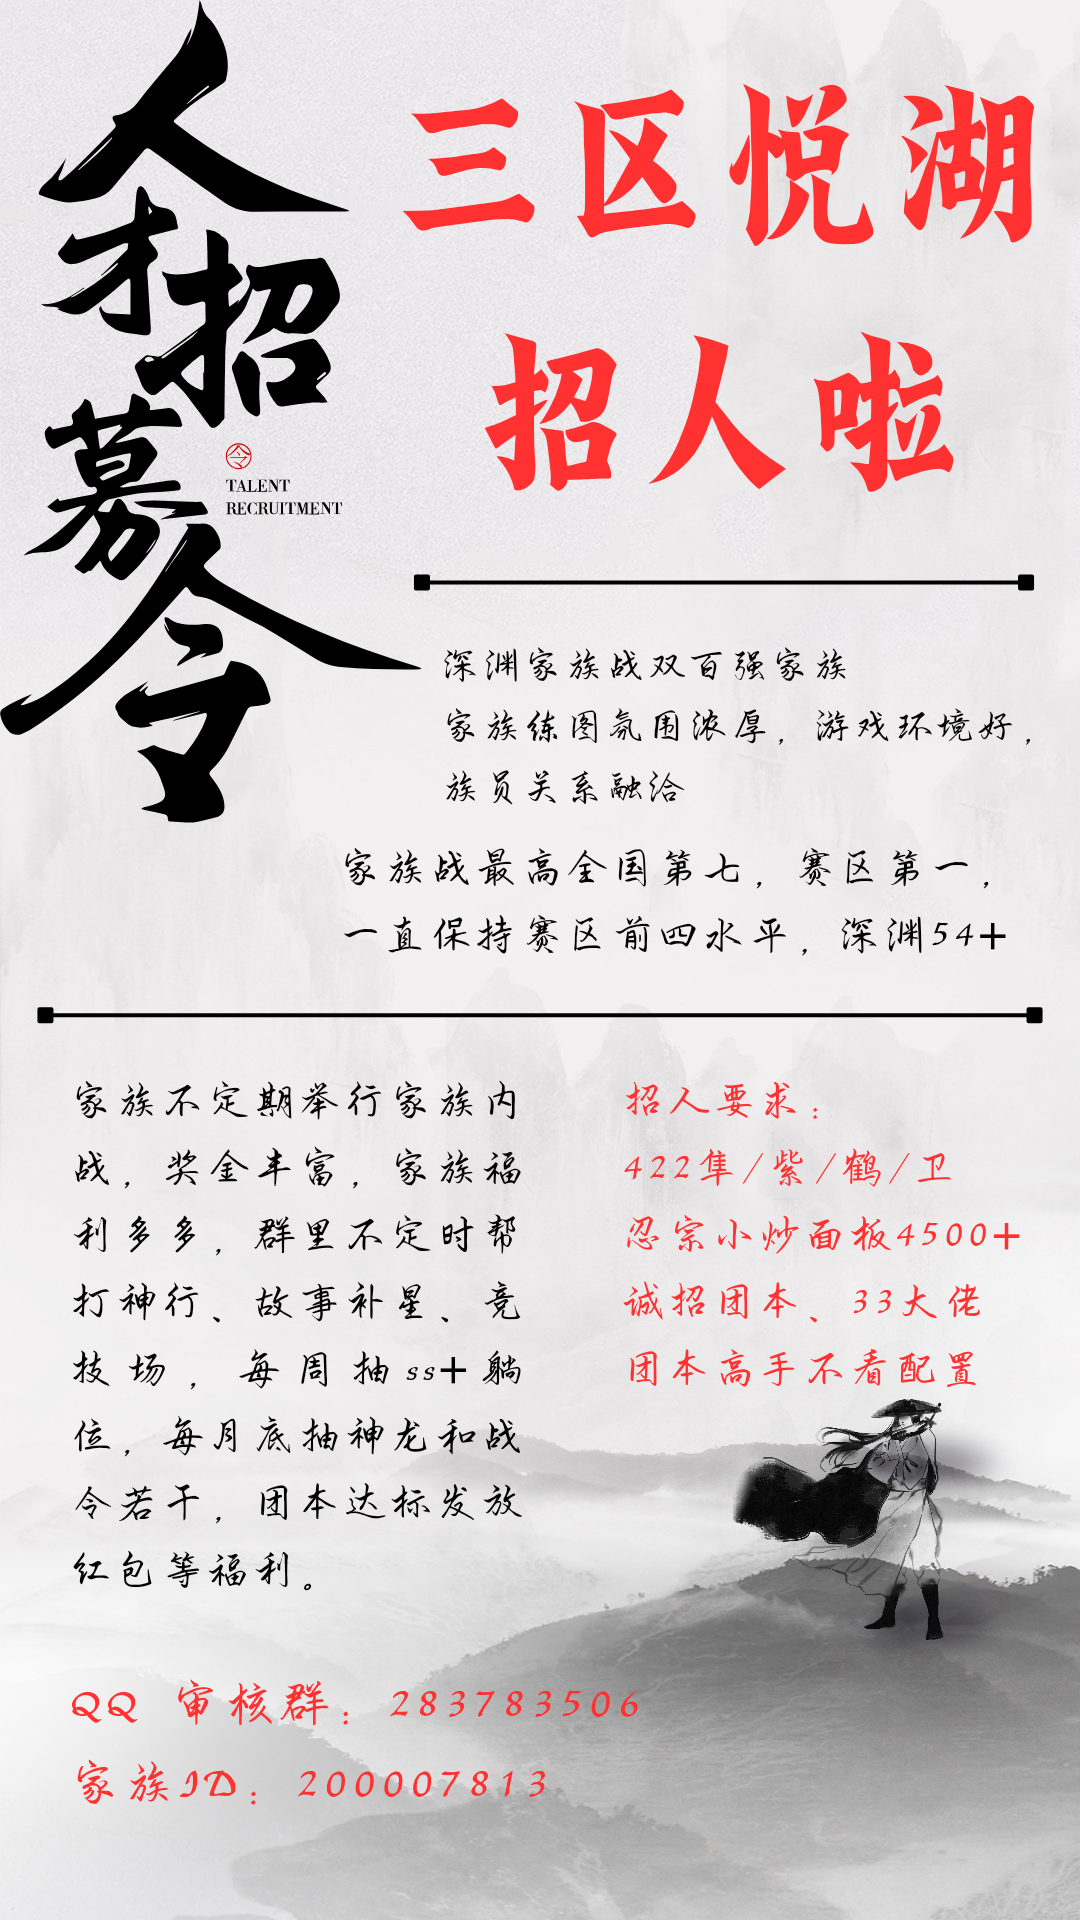 人才招募令
令
TALENT
RECRUITMENT
三区悦湖
招人啦
深渊家族战双百强家族
家族练图氛围浓厚，游戏环境好，
族员关系融洽
家族战最高全国第七，赛区第一，
一直保持赛区前四水平，深渊54+
家族不定期举行家族内
战，奖金丰富，家族福
利多多，群里不定时帮
打神行、故事补星、竞
技场，每周抽ss+躺
位，每月底抽神龙和战
令若干，团本达标发放
红包等福利。
招人要求：
422隼/紫/鹤/卫
忍宗小炒面板4500+
诚招团本、33大佬
团本高手不看配置
QQ 审核群：283783506
家族ID：200007813